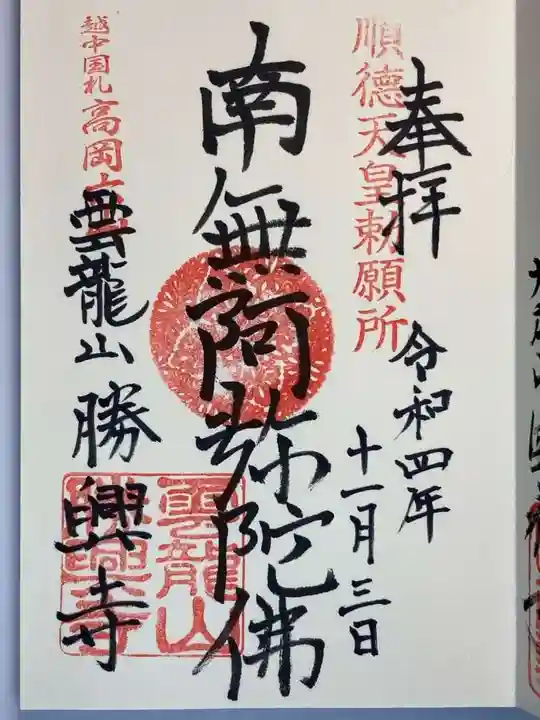 奉拝
順徳天皇勅願所
令和四年
十一月三日
南無阿弥陀佛
越中国札高岡
雲龍山勝興寺
雲龍山
勝興寺